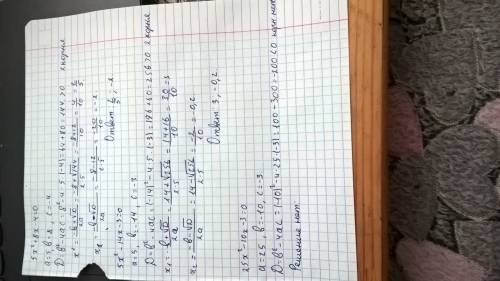 5x²+8x-4=0
a=5, b=8, c=-4
D=b²-4ac=8²-4·5·(-4)=64+80=144>0 2 корня
x₁=(-b+√D)/2a=(-8+√144)/(2·5)=(-8+12)/10=4/10=2/5
x₂=(-b-√D)/2a=(-8-12)/(2·5)=-20/10=-2
Ответ 2/5; -2
5x²-14x-3=0
a=5, b=-14, c=-3
D=b²-4ac=(-14)²-4·5·(-3)=196+60=256>0 2 корня
x₁=(-b+√D)/2a=(14+√256)/(2·5)=(14+16)/10=30/10=3
x₂=(-b-√D)/2a=(14-√256)/(2·5)=-2/10=-0,2
Ответ 3, -0,2
25x²-10x-3=0
a=25, b=-10, c=-3
D=b²-4ac=(-10)²-4·25·(-3)=100-300=-200<0 корн нет
Решение нет